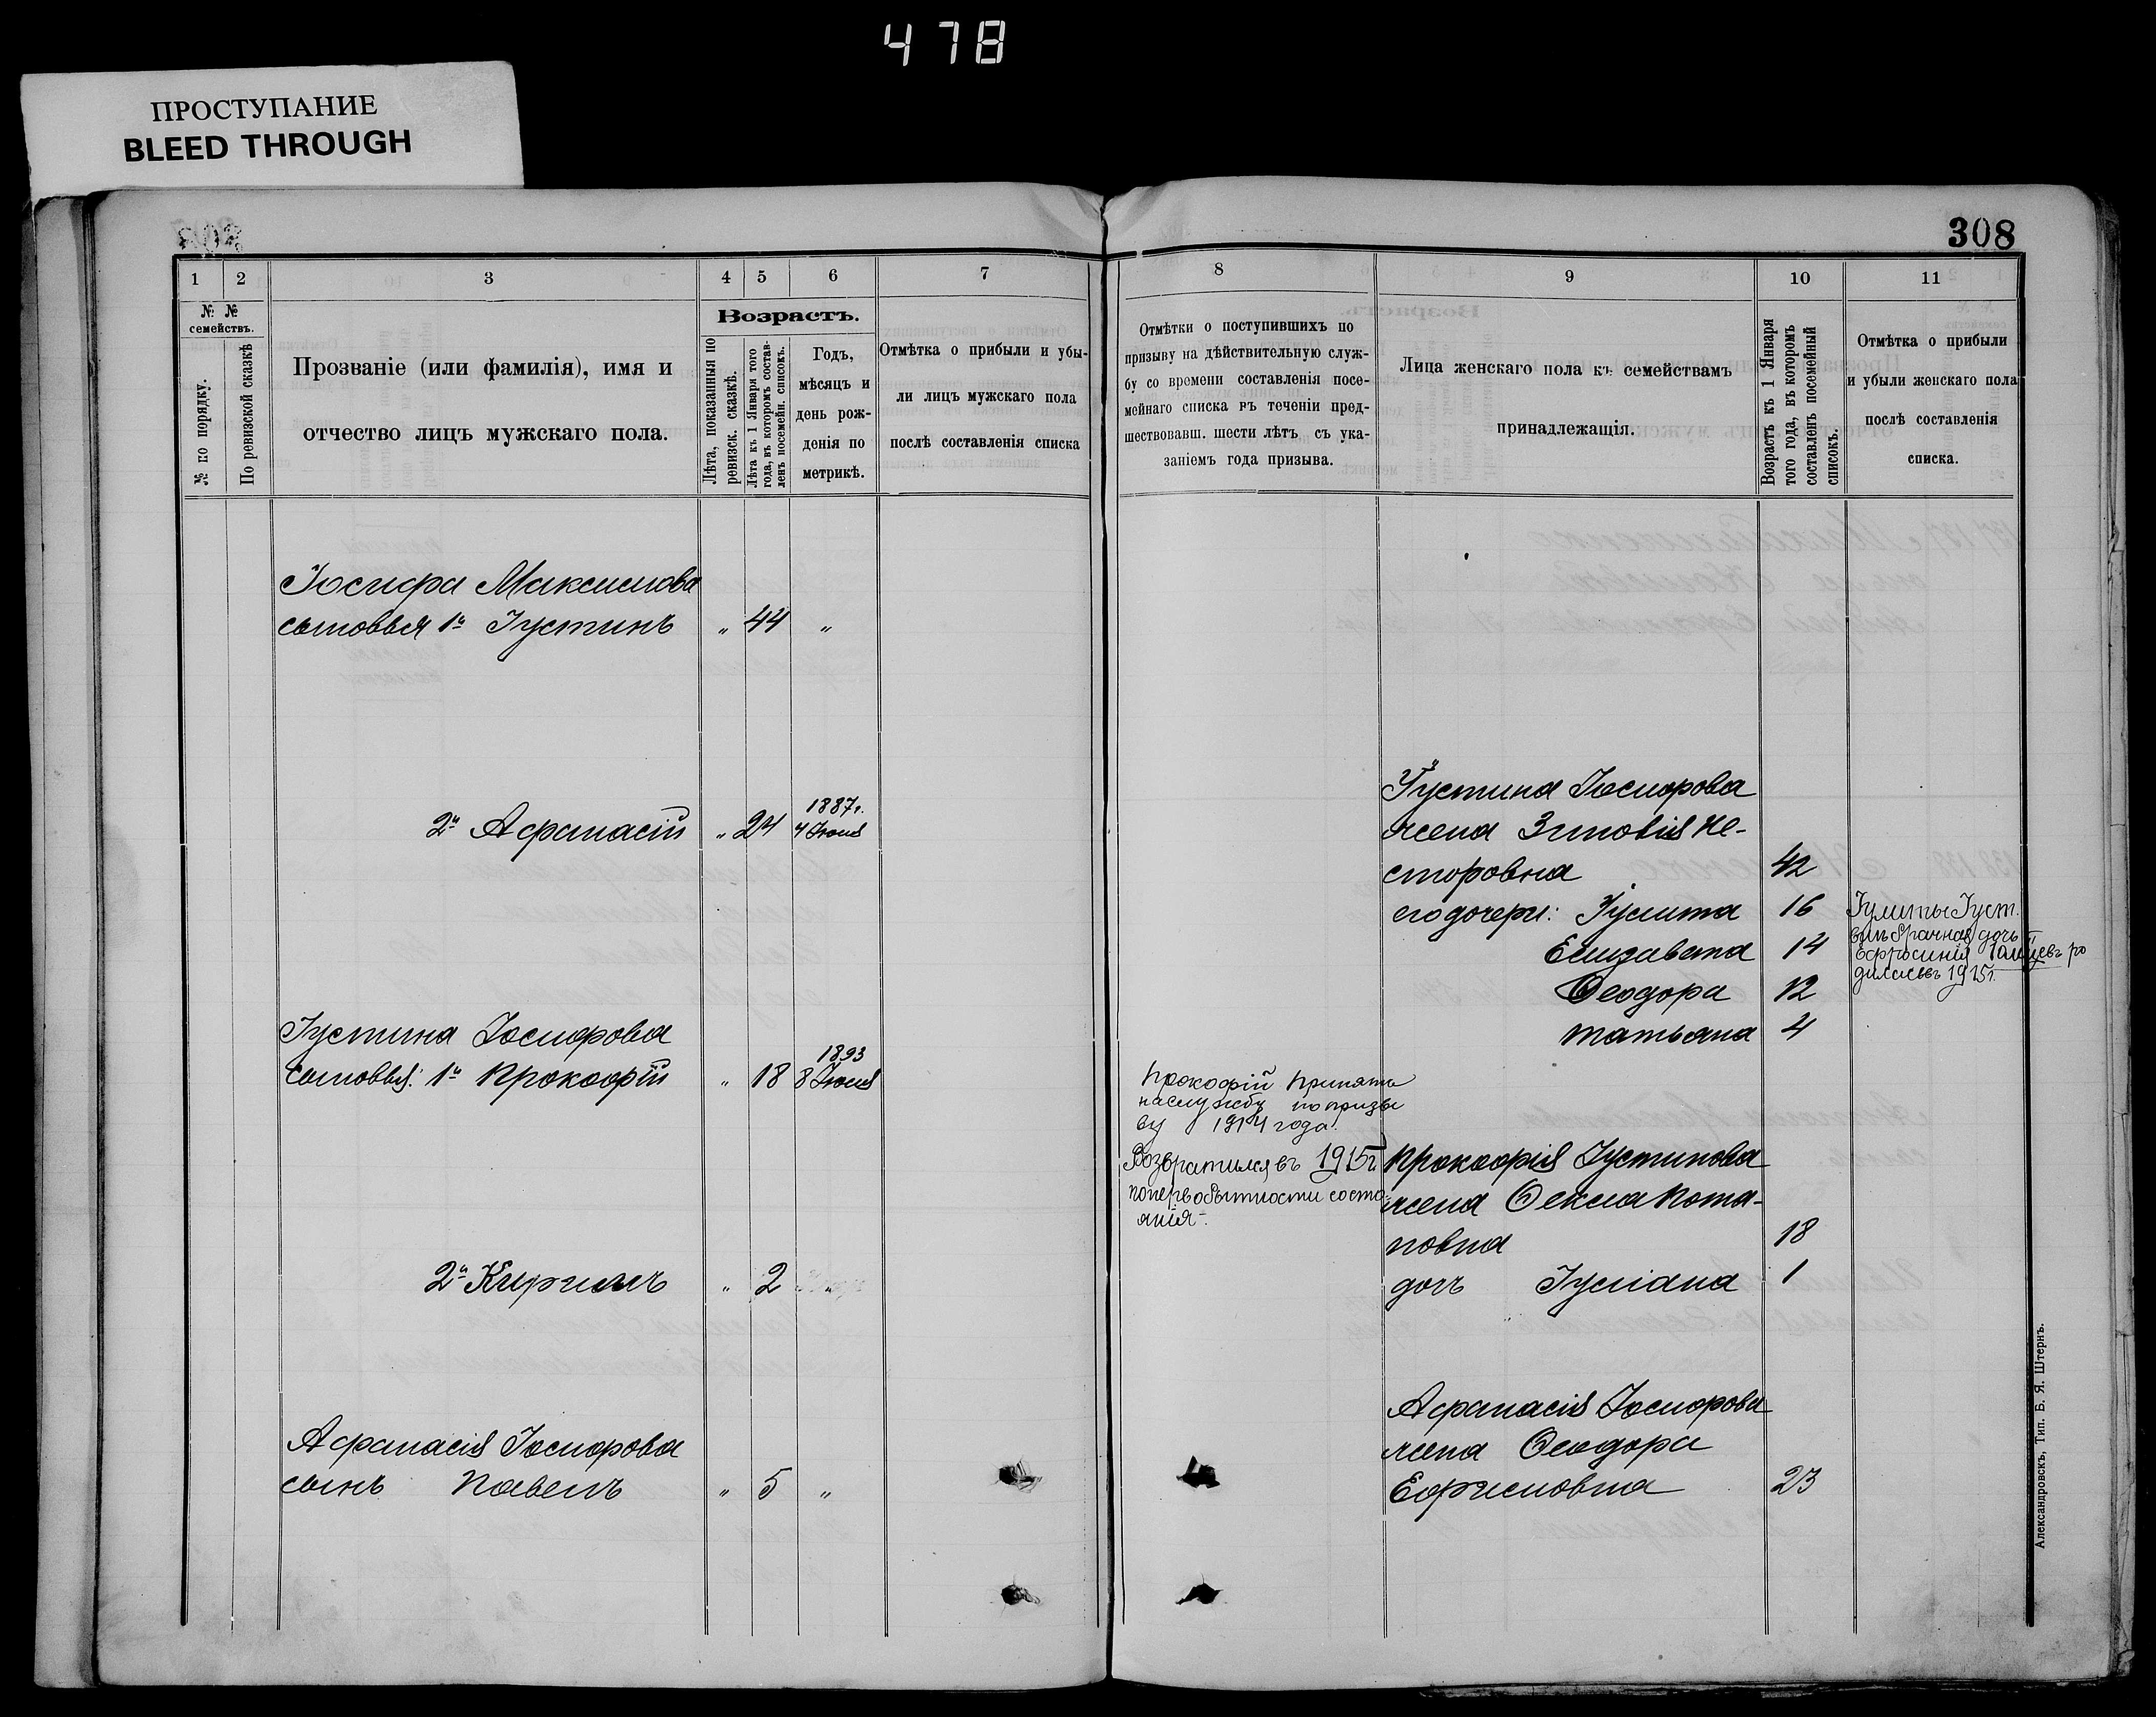 478
ПРОСТУПАНИЕ
BLEED THROUGH
308
1 2 3 4 5 6 7
№ № семействъ.
№ по порядку.
По ревизской сказкѣ
Прозваніе (или фамилія), имя и
отчество лицъ мужскаго пола.
Возрастъ.
Лѣта, показанныя по
ревизск. сказкѣ.
Лѣта къ 1 Января того
года, въ которомъ состав-
ленъ посемейн. списокъ.
Годъ,
мѣсяцъ и
день рож-
денія по
метрикѣ.
Отмѣтка о прибыли и убы-
ли лицъ мужскаго пола
послѣ составленія списка
Іосифа Максимова
сыновья 1й Іустинъ " 44 "
1887г.
2й Афанасій " 24 4 Іюля
Іустина Іосифова
1893
сыновья: 1й Прокофій " 18 8 Іюля
2й Кирилъ " 2 "
Афанасія Іосифова
сынъ Павелъ " 5 "
8 9 10 11
Отмѣтки о поступившихъ по
призыву на дѣйствительную служ-
бу со времени составленія посе-
мейнаго списка въ теченіи пред-
шествовавш. шести лѣтъ съ ука-
заніемъ года призыва.
Лица женскаго пола къ семействамъ
принадлежащія.
Возрастъ къ 1 Января
того года, въ которомъ
составленъ посемейный
списокъ.
Отмѣтка о прибыли
и убыли женскаго пола
послѣ составленія
списка.
Іустина Іосифова
жена Зиновія Не-
сторовна 42
его дочери: Іулита 16
Елизавета 14
Ѳеодора 12
Татьяна 4
Іулиты Іуст.
внѣбрачная дочь
Ефросинія
дилась въ 1915г.
Прокофій принятъ
на службу по призы
ву 1914 года.
Возвратился въ 1915г.
по первобытности состо-
янія
Прокофія Іустинова
жена Ѳекла Пота-
повна 18
дочь Іуліана 1
Афанасія Іосифова
жена Ѳеодора
Ефимовна 23
Александровскъ, Тип. Б. Я. Штернъ.